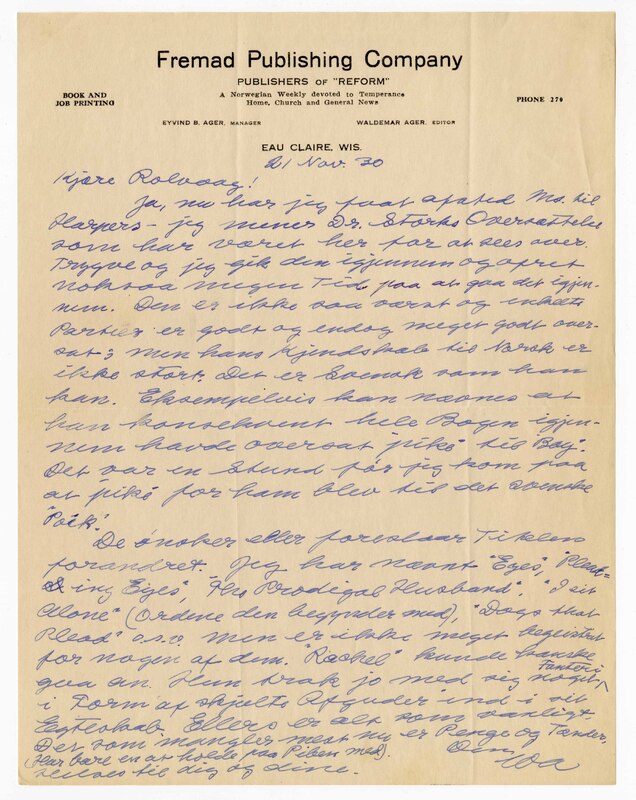 Fremad Publishing Company
PUBLISHERS OF "REFORM"
A Norwegian Weekly devoted to Temperance
Home, Church and General News
BOOK AND
JOB PRINTING
PHONE 270
EYVIND B. AGER, MANAGER
WALDEMAR AGER, EDITOR
EAU CLAIRE, WIS.
21 Nov. 30
Kjære Rolvaag!
Ja, nu har jeg faat afsted Ms. til
Harpers – jeg mener Dr. Storks Oversættelse
som har været her for at sees over.
Trygve og jeg gik den igjennem og
noksaa megen Tid paa at gaa det igjen-
nem. Den er ikke saa værst og enkelte
Partier er godt og endog meget godt over-
sat; men hans Kjendskab til Norsk er
ikke stort. Det er Svensk som han
kan. Eksempelvis kan nævnes at
han konsekvent hele Bogen igjen-
nem havde oversat "pike" til "Boy".
Det var en Stund før jeg kom paa
at pike for ham blev til det svenske
"Poik".
De ønsker eller foreslaar Titelen
forandret. Jeg har nævnt "Eyes", "Plead-
ing Eyes", "The Prodigal Husband", "I sit
Alone" (Ordene den begynder med), "Dogs that
Plead" o.s.v. men er ikke meget begeistret
for nogen af dem. "Rachel" kunde kanske
gaa an. Hun trak jo med sig noget
i Form af skjulte Afguder ind i sit
Egteskab. Ellers er alt som vanligt.
Det som mangler mest nu er Penge og Tænder.
(Har bare en at holde paa Piben med).
Hilsen til dig og dine.
Din
WA